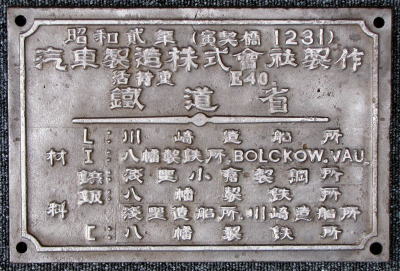 昭和貳年 (寅契橋 1231)
汽車製造株式會社製作
活荷重 E40.
鐵道省
材料
L: 川崎造船所
I: 八幡製鉄所, BOLCKOW. VAU.
鈑: 淺野小倉製鋼所
八幡製鉄所
淺野造船所, 川崎造船所
[: 八幡製鉄所